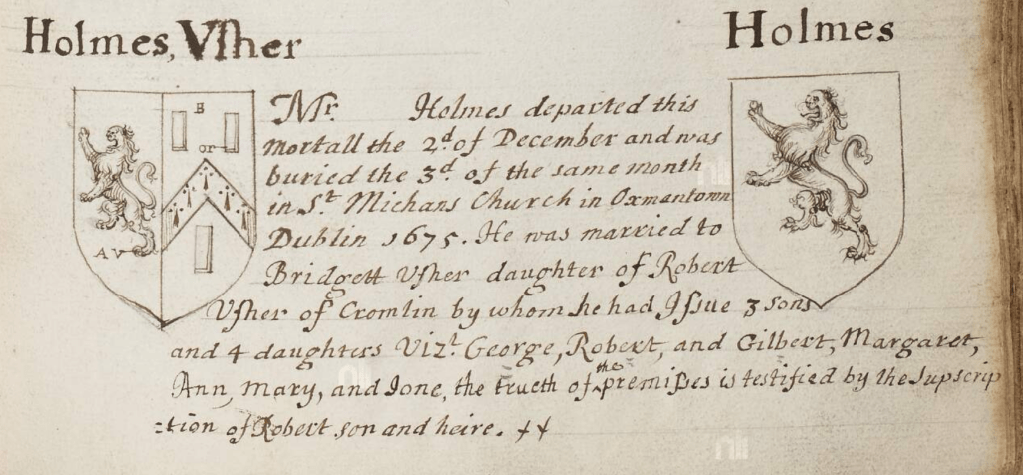 Holmes, Vſher
Holmes
B
or
A V
Mr. Holmes departed this
mortall the 2d. of December and was
buried the 3d. of the same month
in St. Michans Church in Oxmantown
Dublin 1675. He was married to
Bridgett Vſher daughter of Robert
Vſher of Cromlin by whom he had Iſsue 3 sons
and 4 daughters Vizt. George, Robert, and Gilbert, Margaret,
Ann, Mary, and Ione, the trueth of the premiſses is testified by the Supscrip
=tion of Robert son and heire.